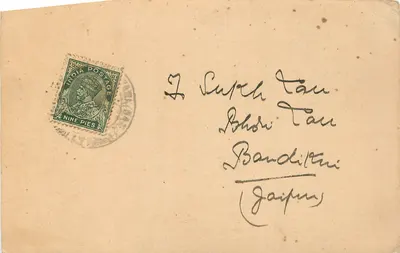 INDIA POSTAGE
NINE PIES
To Sukh Lall
Bhori Lall
Bandikui
(Jaipur)